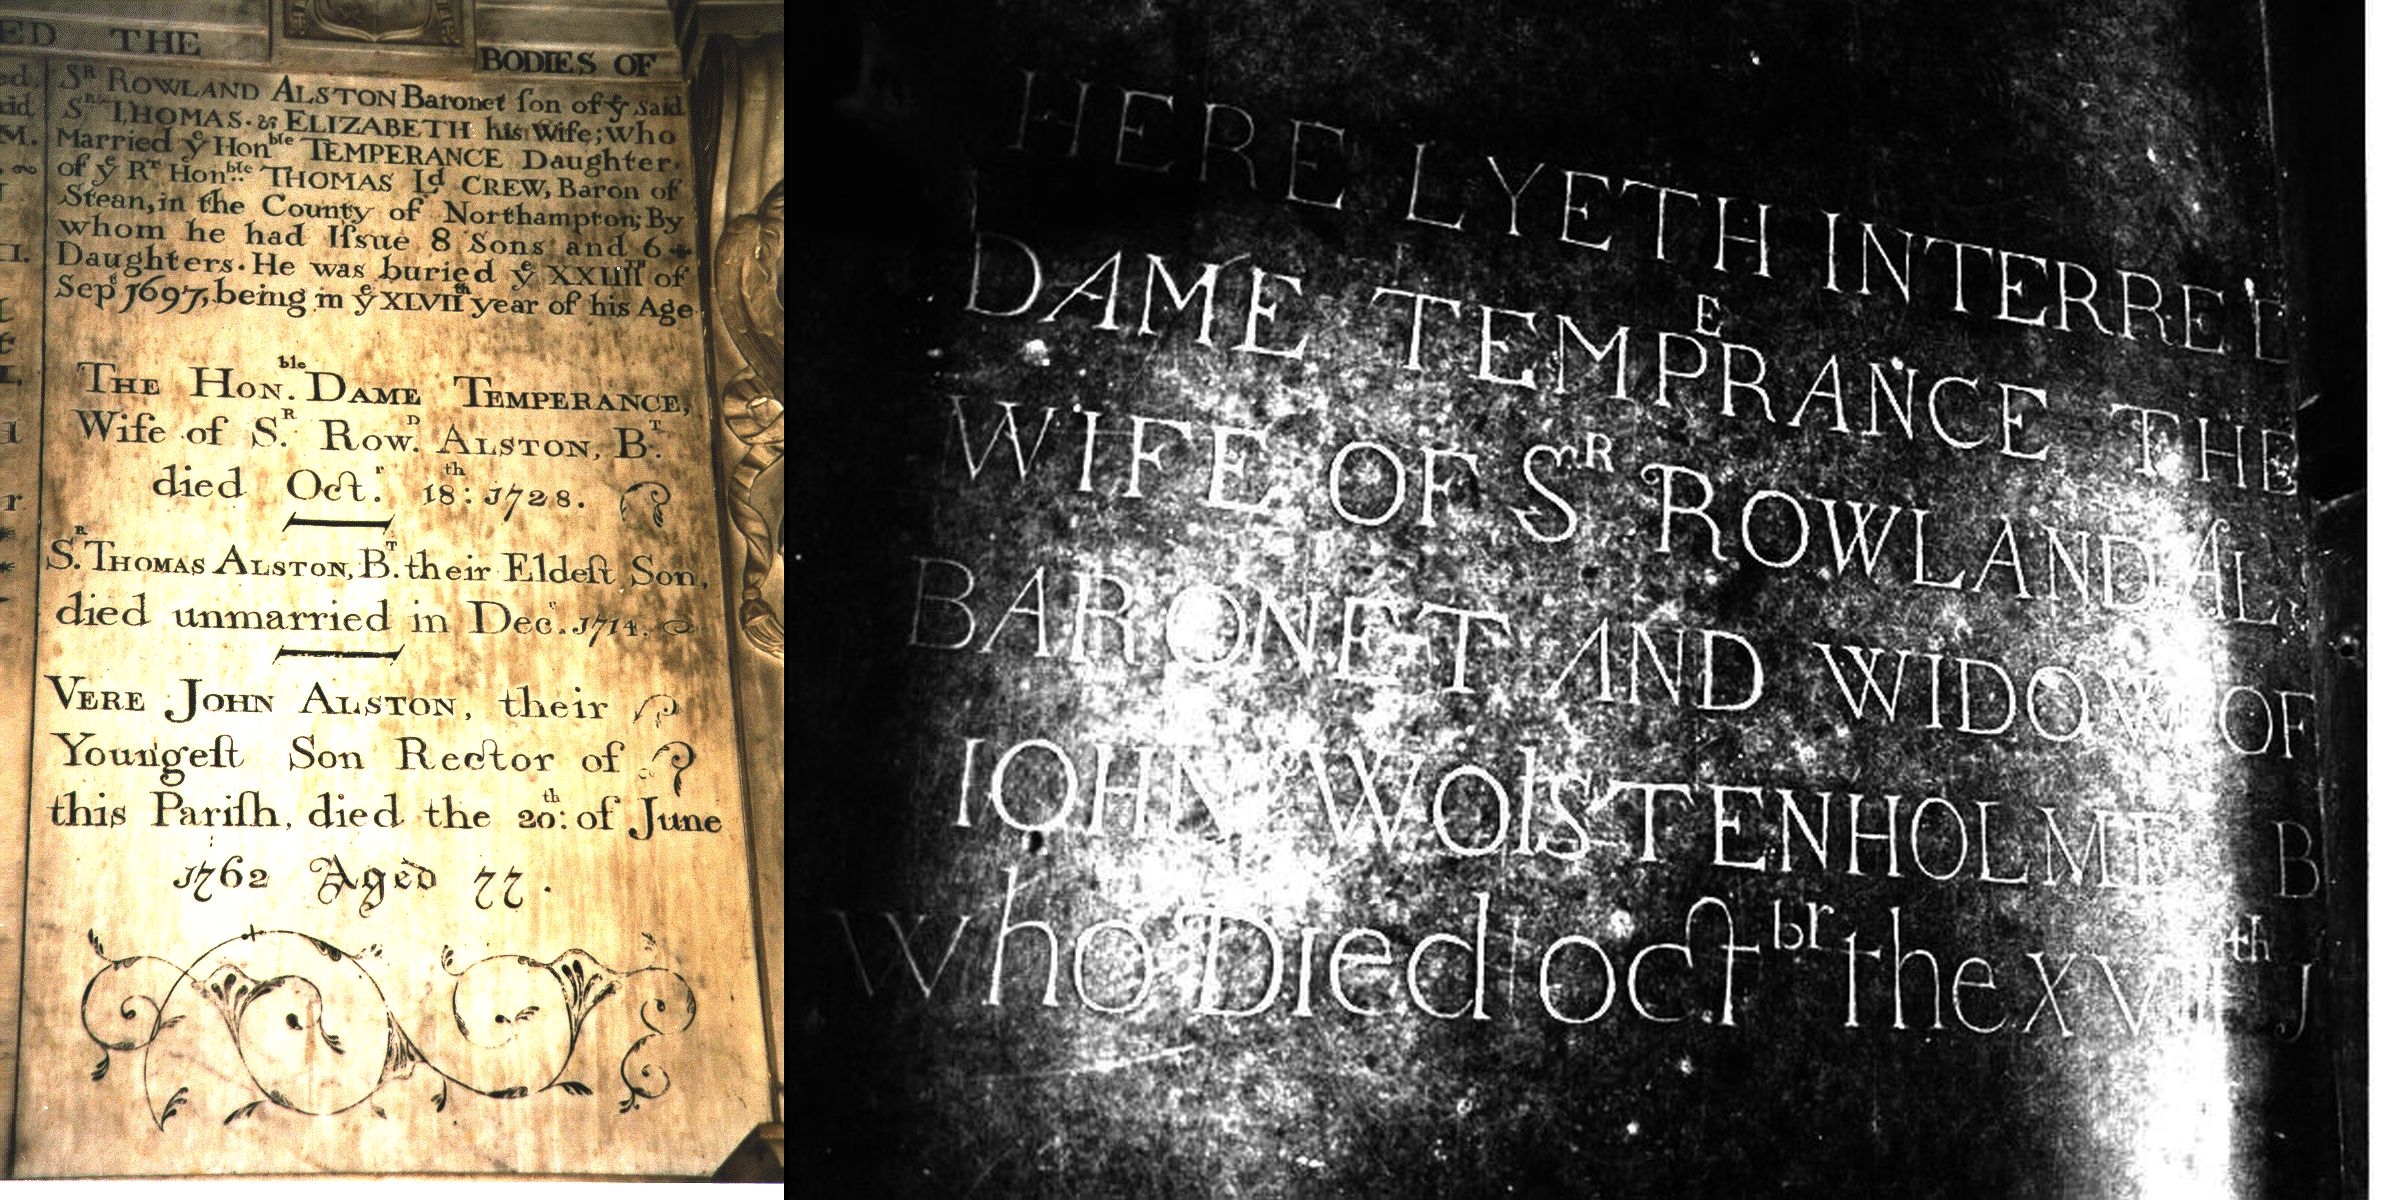 ED THE BODIES OF
Sᴿ ROWLAND ALSTON Baronet ſon of yͤ said
Sᴿ THOMAS. & ELIZABETH his Wife; Who
Married yͤ Honᵇˡᵉ TEMPERANCE Daughter
of yͤ Rᵀ Honᵇˡᵉ THOMAS Lᵈ CREW, Baron of
Stean, in the County of Northampton; By
whom he had Iſsue 8 Sons and 6
Daughters. He was buried yͤ XXIIIIᵀᴴ of
Sepᵗ 1697, being in yͤ XLVIIᵗʰ year of his Age
THE HON.ᵇˡᵉ DAME TEMPERANCE,
Wife of S.ᴿ ROW.ᴰ ALSTON, B.ᵀ
died Oct.ʳ 18:ᵗʰ 1728.
S.ᴿ THOMAS ALSTON, B.ᵀ their Eldeſt Son,
died unmarried in Dec.ʳ 1714.
VERE JOHN ALSTON, their
Youngeſt Son Rector of
this Pariſh, died the 20:ᵗʰ of June
1762 Aged 77.
HERE LYETH INTERRED
DAME TEMPᴱRANCE THE
WIFE OF Sᴿ ROWLAND ALS
BARONET AND WIDOW OF
IOHN WOlSTENHOLME B
who Died octᵇʳ the XVIIIᵗʰ J